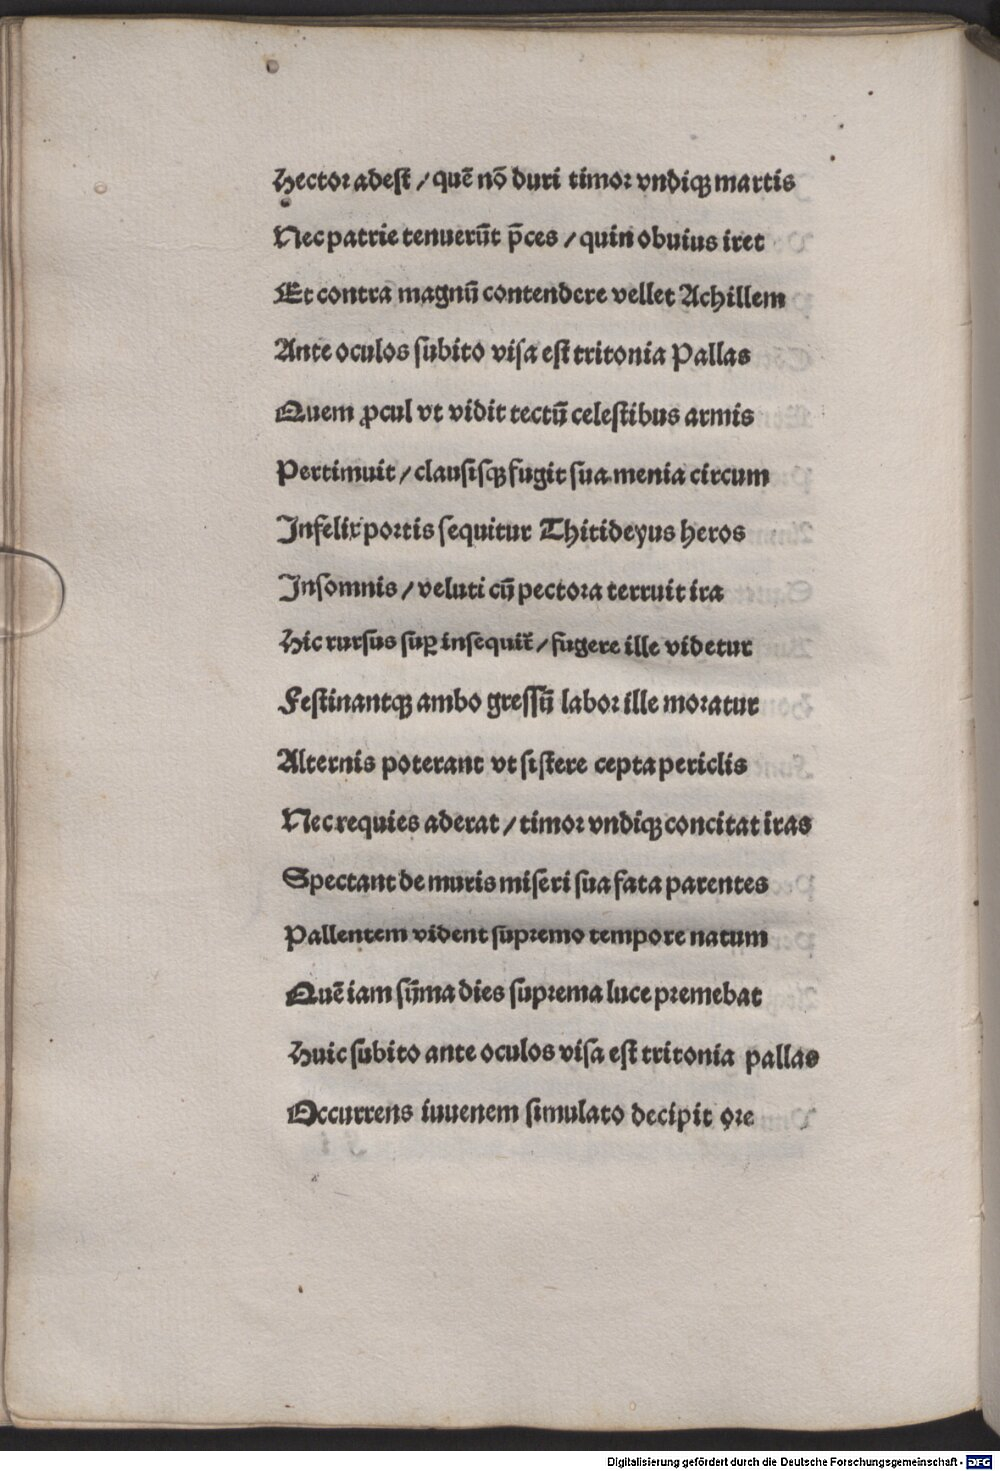 Hector adest / quē nō duri timor vndiqꝫ martis
Nec patrie tenuerūt p̄ces / quin obuius iret
Et contra magnū contendere vellet Achillem
Ante oculos subito visa est tritonia Pallas
Quem ꝓcul vt vidit tectū celestibus armis
Pertimuit / clausisqꝫ fugit sua menia circum
Infelix portis sequitur Thitideyus heros
Insomnis / veluti cū pectora terruit ira
Hic rursus suꝑ insequit᷑ / fugere ille videtur
Festinantqꝫ ambo gressū labor ille moratur
Alternis poterant vt sistere cepta periclis
Nec requies aderat / timor vndiqꝫ concitat iras
Spectant de muris miseri sua fata parentes
Pallentem vident supremo tempore natum
Quē iam sūma dies suprema luce premebat
Huic subito ante oculos visa est tritonia pallas
Occurrens iuuenem simulato decipit ore
Digitalisierung gefördert durch die Deutsche Forschungsgemeinschaft - DFG